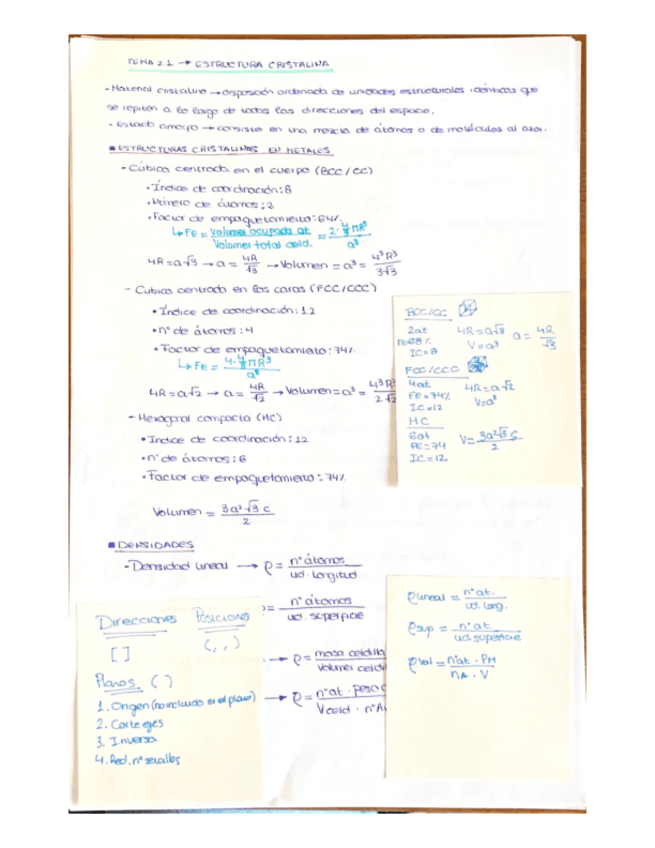 TEMA 2.1 → ESTRUCTURA CRISTALINA
- Material cristalino → disposición ordenada de unidades estructurales idénticas que
se repiten a lo largo de todas las direcciones del espacio.
- Estado amorfo → consiste en una mezcla de átomos o de moléculas al azar.
■ ESTRUCTURAS CRISTALINAS EN METALES
- Cúbica centrada en el cuerpo (BCC/CC)
• Índice de coordinación: 8
• Número de átomos: 2
• Factor de empaquetamiento: 64%
↳ FE = Volumen ocupado at. / Volumen total celd. = 2·4/3 π R³ / a³
4R = a√3 → a = 4R/√3 → Volumen = a³ = 4³R³ / 3√3
- Cúbica centrada en las caras (FCC/CCC)
• Índice de coordinación: 12
• nº de átomos: 4
• Factor de empaquetamiento: 74%
↳ FE = 4·4/3 π R³ / a³
4R = a√2 → a = 4R/√2 → Volumen = a³ = 4³R³ / 2√2
- Hexagonal compacta (HC)
• Índice de coordinación: 12
• nº de átomos: 6
• Factor de empaquetamiento: 74%
Volumen = 3a²√3 c / 2
■ DENSIDADES
- Densidad lineal → ρ = nº átomos / ud. longitud
ρ = nº átomos / ud. superficie
→ ρ = masa celdilla / Volumen celdi
→ ρ = nº at · peso / Vceld · nºA
BCC/CC
2at 4R = a√3 a = 4R/√3
V = a³
IC = 8
FCC/CCC
4at 4R = a√2
FE = 74% V = a³
IC = 12
HC
6at
FE = 74 V = 3a²√3 c / 2
IC = 12
Direcciones Posiciones
[ ] ( , , )
Planos ( )
1. Origen (no incluido en el plano)
2. Corte ejes
3. Inversa
4. Red. nº sencillos
ρ lineal = nº at. / ud. long.
ρ sup = nº at / ud. superficie
ρ vol = nº at · PM / nA · V